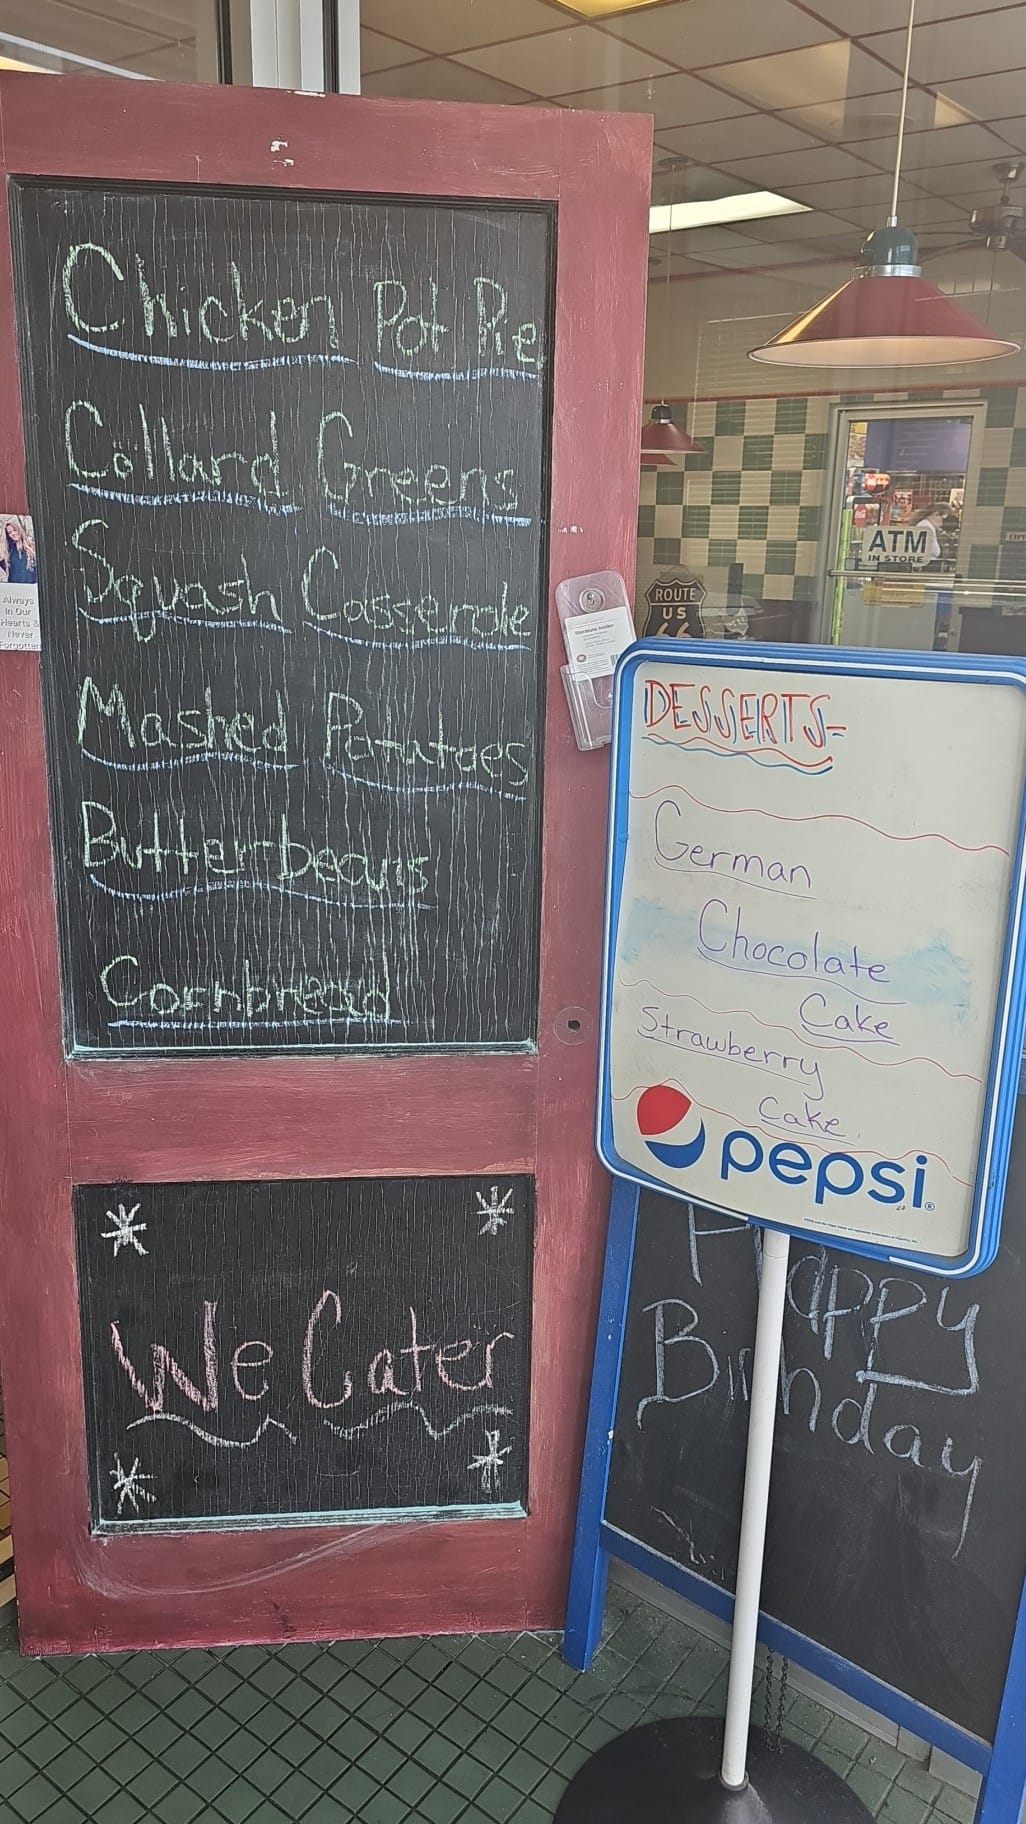 Chicken Pot Pie
Collard Greens
Squash Casserole
Mashed Potatoes
Butterbeans
Cornbread
We Cater
Always
In Our
Hearts &
Never
Forgotten
literature holder
ATM
IN STORE
ROUTE
US
66
DESSERTS-
German
Chocolate
Cake
Strawberry
Cake
pepsi
Happy
Birthday